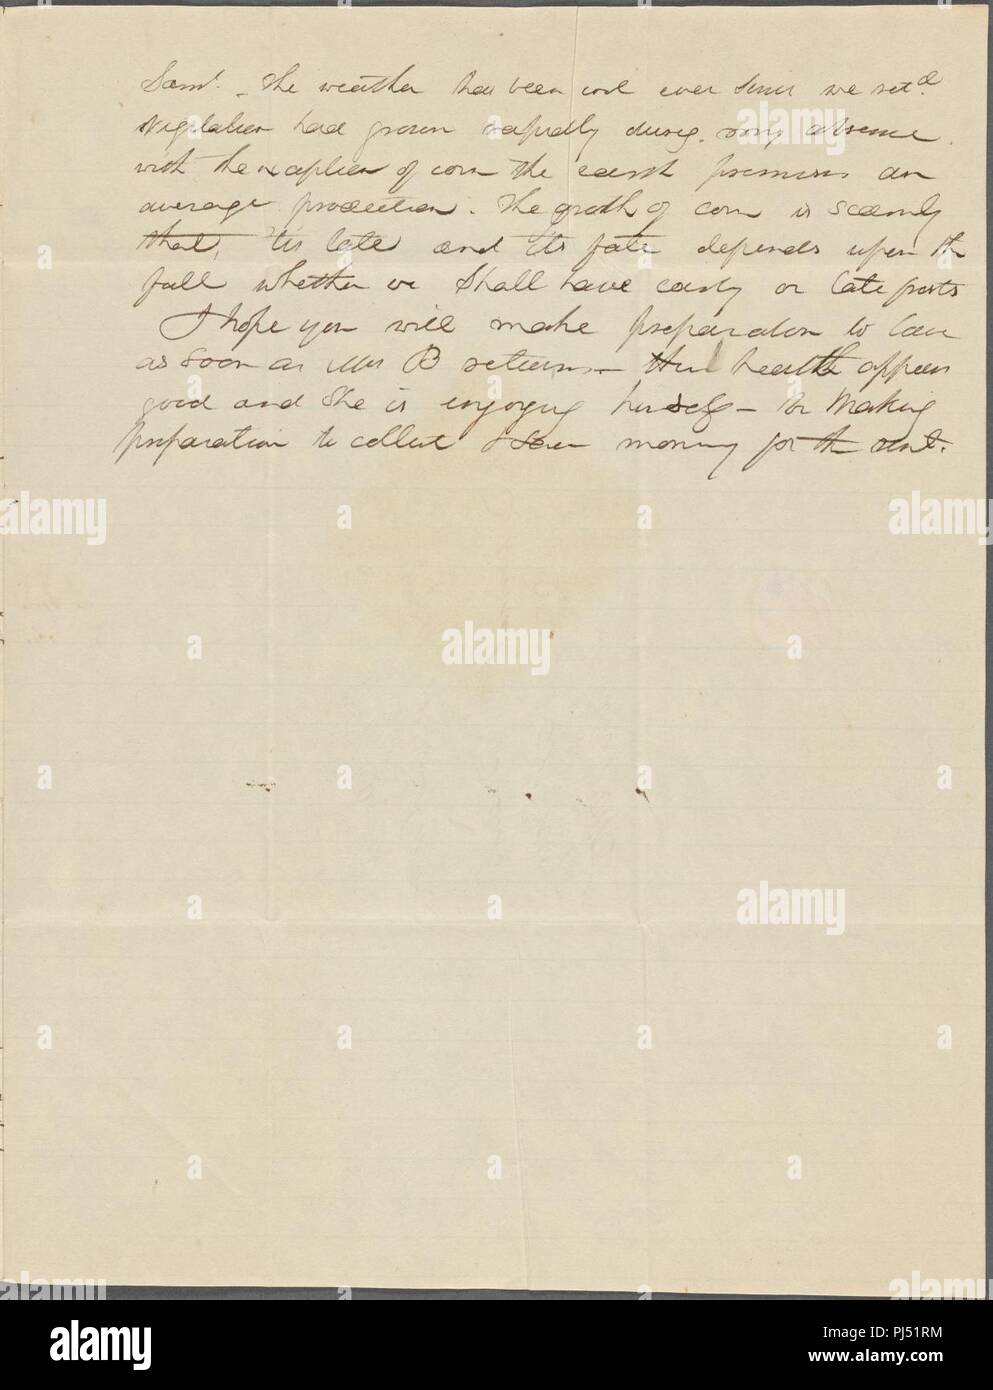 Saml. - The weather has been cool ever since we retd.
Vegitation had grown rapidly during my absence.
with the exception of corn the earth promises an
average production. The groth of corn is scarcely
that, 'tis late and its fate depends upon the
fall whether we shall have early or late frosts
I hope you will make preparation to leave
as soon as Mrs B returns - Her health appears
good and she is enjoying herself - in making
preparation to collect some money for the
alamy
alamy
alamy
alamy
alamy
alamy
alamy
alamy
a a a a
alamy
Image ID: PJ51RM
www.alamy.com